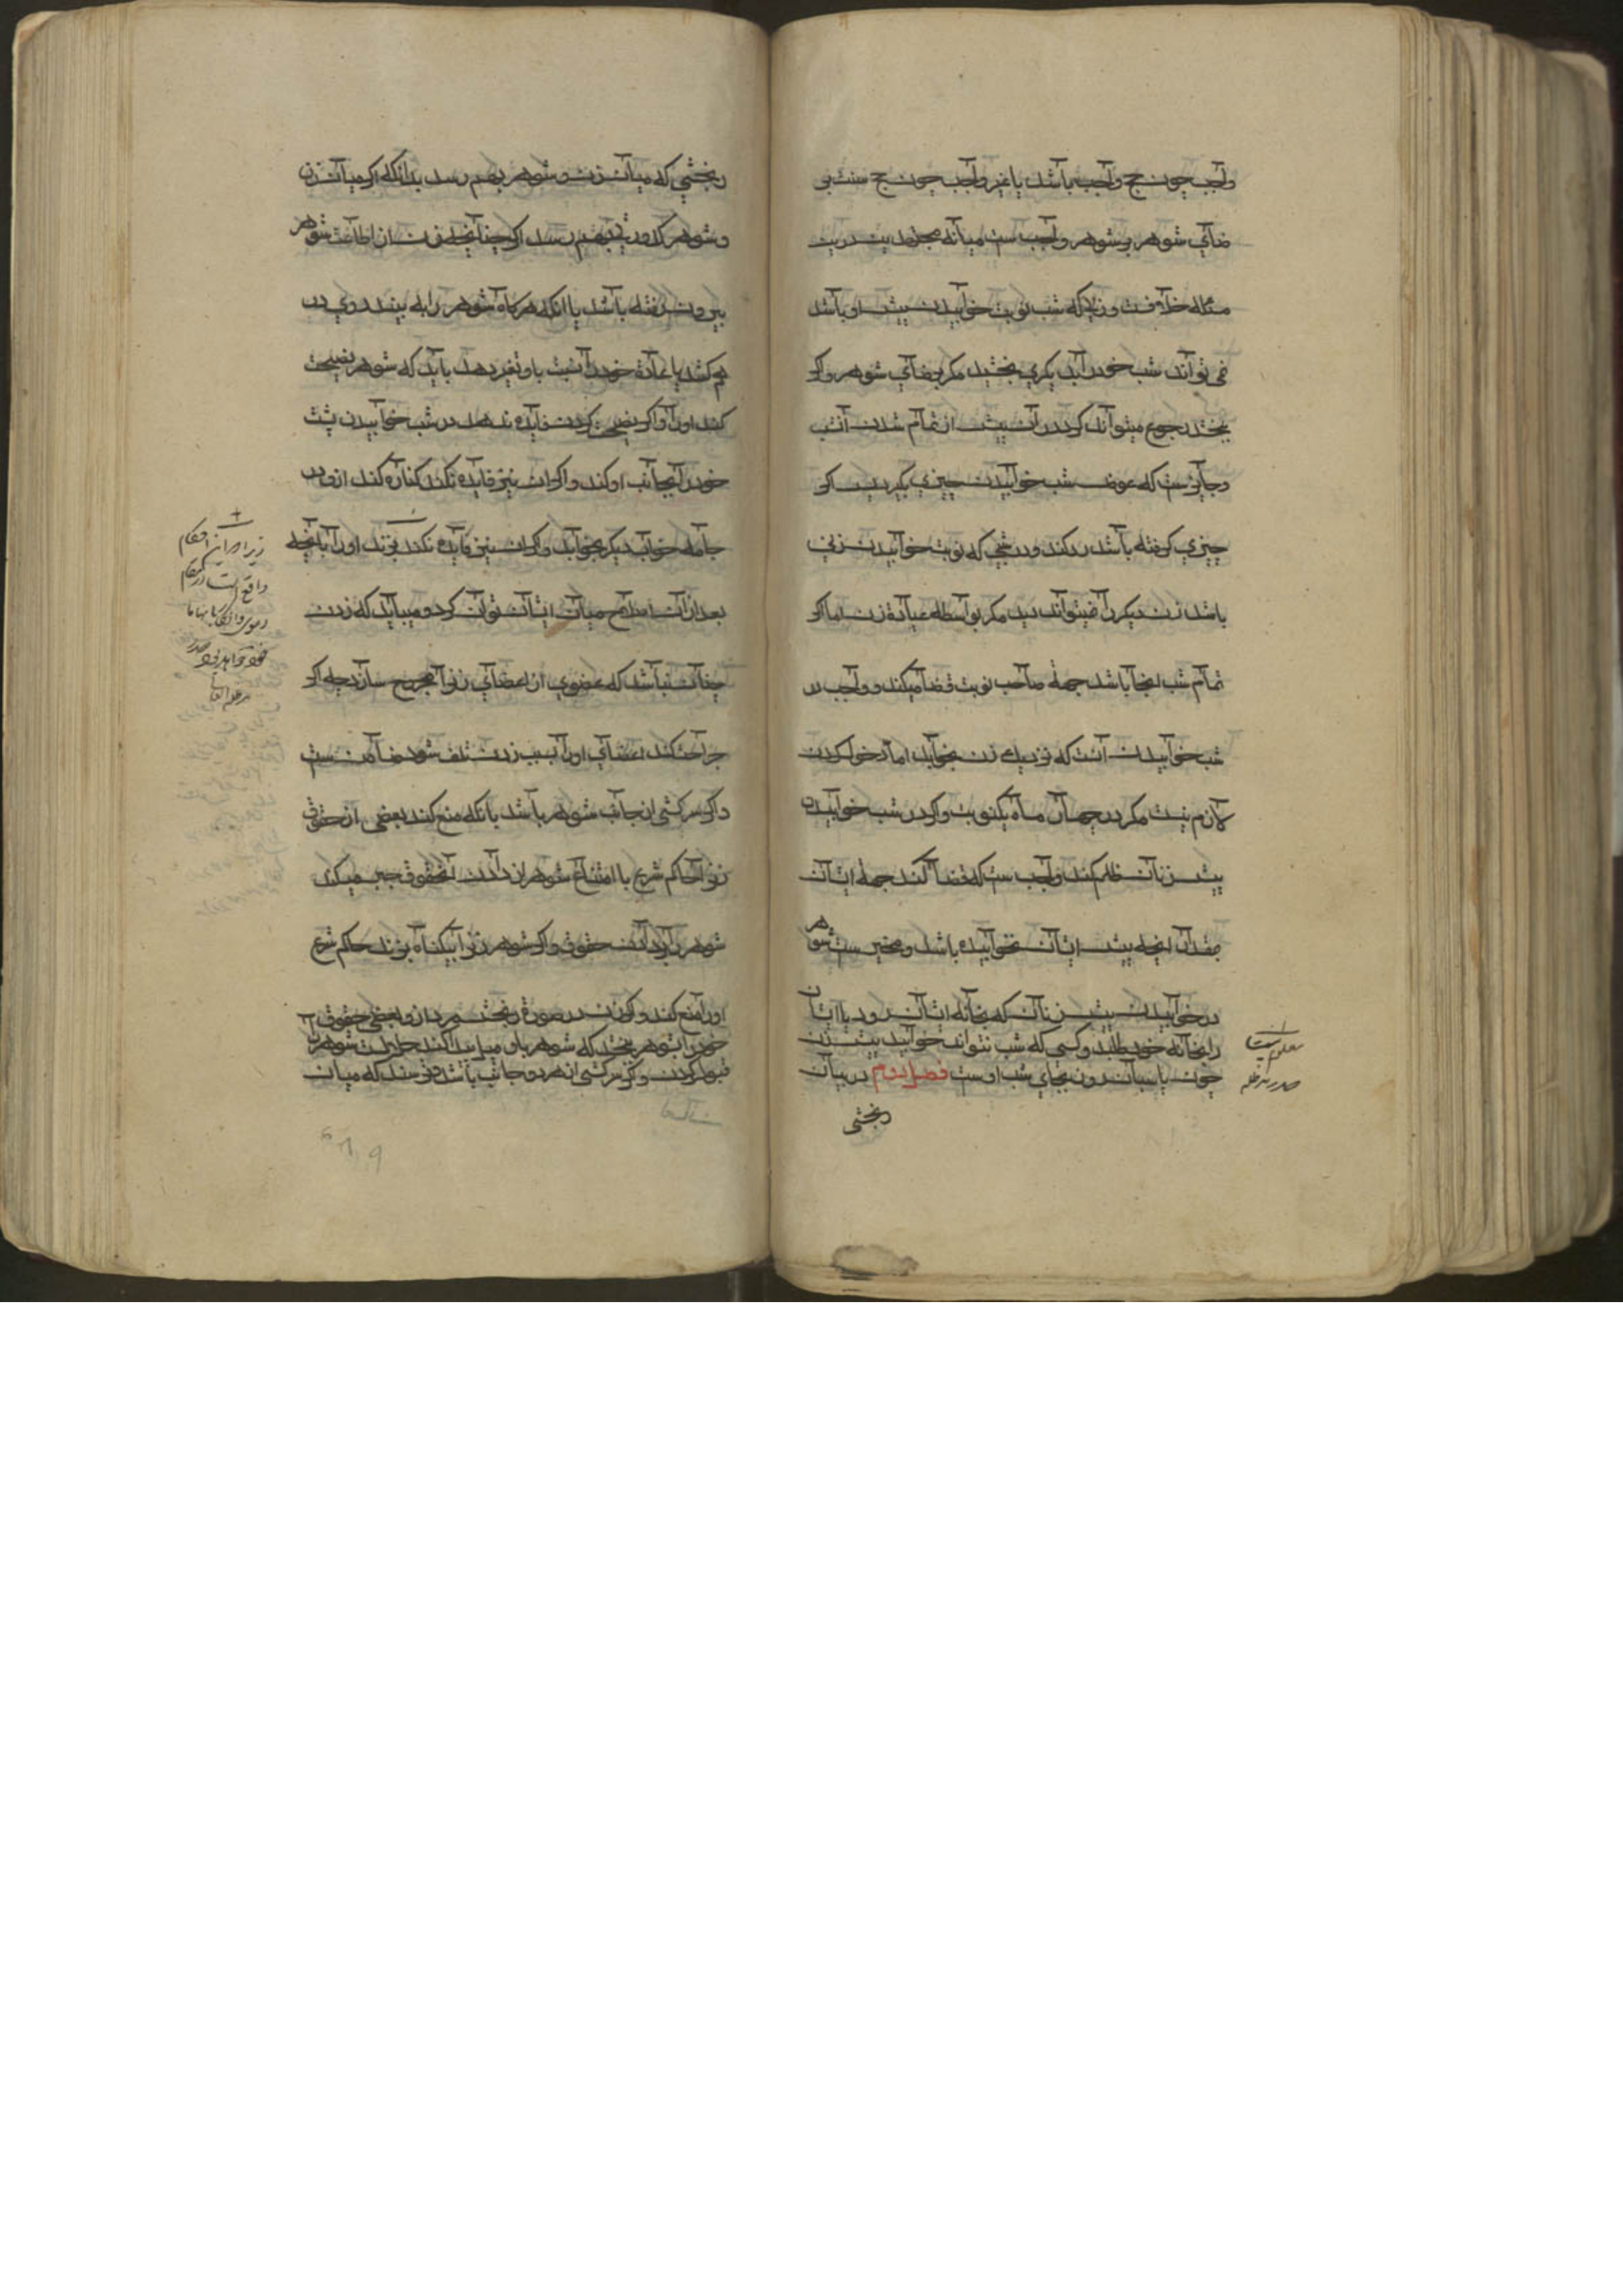 واجب چون حج واجب باشد یا غیر واجب چون حج سنت بی
رضای شوهر بر شوهر واجب ست میانه مجتهدین درین
مسئله خلافست و زنیکه شب نوبت خوابیدن پیش او باشد
نمی تواند شب خود را بدیکری بخشید مکر برضای شوهر و اکر
بخشد رجوع میتواند کرد در آن پیش از تمام شدن آنشب
و جایز نیست که عوض شب خوابیدن چیزی بکیرد پس اکر
چیزی کرفته باشد رد کند و در شبی که نوبت خوابیدن زنی
باشد زن دیکر را نمیتواند دید مکر بواسطه عیادة زن اما اکر
تمام شب انجا باشد جهة صاحب نوبت قضا میکند و واجب در
شب خوابیدن آنست که نزدیک زن بخوابد اما دخول کردن
لازم نیست مکر در چهار ماه یکنوبت و اکر در شب خوابیدن
پیش زنان ظلم کند واجب ست که قضا کند جهة ایشان
مقدار آنچه پیش ایشان نخوابیده باشد و مخیر ست شوهر
در خوابیدن پیش زنان که بخانه ایشان رود یا ایشان
را بخانه خود طلبد و کسی که شب نتواند خوابید پیش زن
چون پاسبان روز بجای شب اوست فصل دوم در بیان
رنجشی
معلوم نیست
صدر مدظله
رنجشی که میان زن و شوهر بهم رسد بدانکه اکر میان زن
و شوهر کدورتی بهم رسد اکر چنانچه زن از اطاعت شوهر
بیرون رفته باشد یا انکه هرکاه شوهر را به بیند روی در
هم کشد یا عادة خود را نسبت باو تغیر دهد باید که شوهر نصیحت
کند او را و اکر نصیحت کردن فایده ندهد در شب خوابیدن پشت
خود را بجانب او کند و اکر ان نیز فایده نکند کناره کند ازو در
جامه خواب دیکر بخوابد و اکر ان نیز فایده نکند بزند او را بانچه
بعد از آن اصلاح میان ایشان توان کرد و میباید که زدن
چنان نباشد که عضوی از اعضای زنرا مجروح سازد چه اکر
جراحت کند اعضای او را بسبب زدن تلف شود ضامن ست
و اکر سرکشی از جانب شوهر باشد بانکه منع کند بعضی از حقوق
زنرا حاکم شرع با امتناع شوهر از دادن آنحقوق جبر میکند
شوهر را بر دادن حقوق و اکر شوهر زنرا بیکناه بزند حاکم شرع
او را منع کند و اکر زن در صورة رنجش مرد ازو بعضی حقوق
خود را بشوهر بخشد که شوهر باو میل پیدا کند حلال ست شوهر را
قبول کردن و اکر سرکشی از هر دو جانب باشد و ترسند که میان
زیرا احکام
واقع است